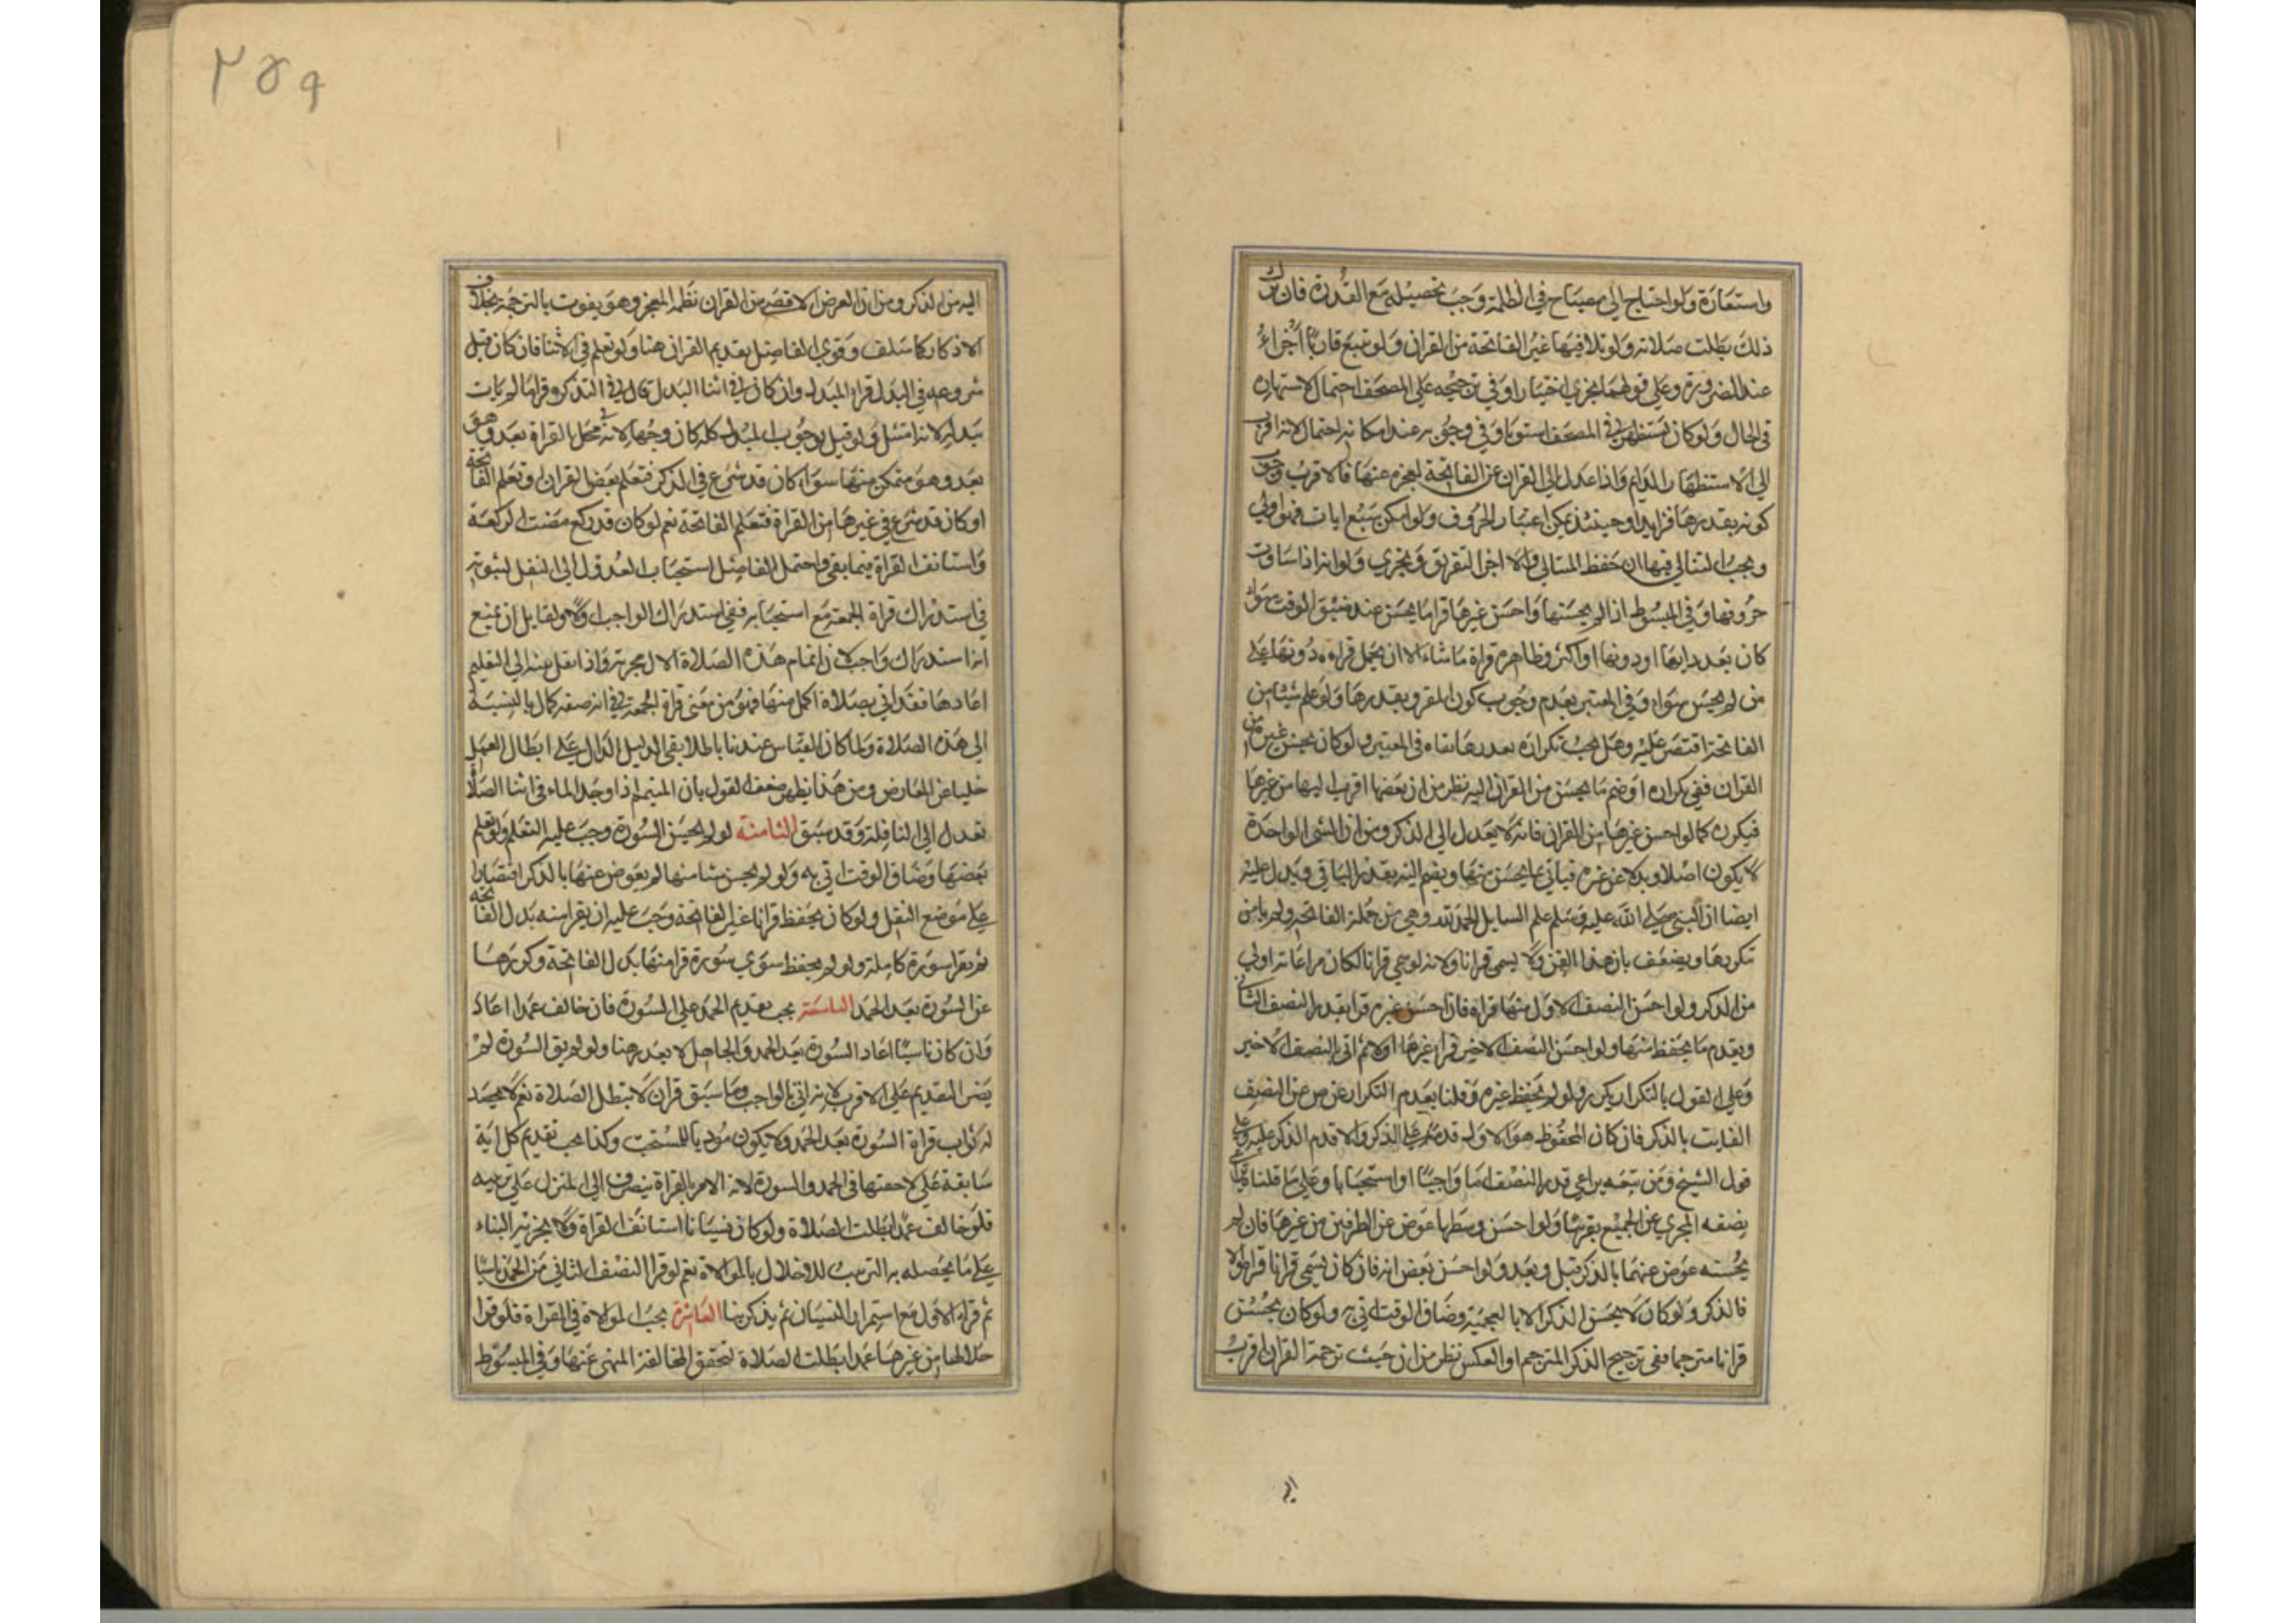 واستعارة ولو احتاج الى مصباح في الظلمة وجب تحصيله مع القدرة فان ترك
ذلك بطلت صلاته ولو تلا فيها غير الفاتحة من القران ولو تتبع قاريا اجزاء
عند الضرورة وعلى قولهما يجزي اختيارا وفي ترجيحه على المصحف احتمال لاستهاره
في الحال ولو كان يستظهر في المصحف استويا وفي وجوبه عند امكانه احتمال لانه اقرب
الى الاستظهار الدايم واذا عدل الى القران عن الفاتحة لعجزه عنها فالاقرب وجوب
كونه بقدرها فزايدا وحينئذ يمكن اعتبار الحروف ولو امكن سبع ايات فهو اولى
ويجب التتالي فيها ان حفظ المتتالي والا اجزا التفريق ويجزي ولو انه اذا ساوت
حروفها وفي المبسوط اذا لم يحسنها واحسن غيرها قرا ما يحسن عند ضيق الوقت سواء
كان بعدد اياتها او دونها او اكثر وظاهره قراة ما شاء الا ان يحمل قراءة دونها على
من لم يحسن سواه وفي المعتبر بعدم وجوب كون المقرو بقدرها ولو علم شيئا من
الفاتحة اقتصر عليه وهل يجب تكراره بقدرها نفاه في المعتبر ولو كان يحسن غيره من
القران ففي تكراره او ضم ما يحسن من القران اليه نظر من ان بعضها اقرب اليها من غيرها
فيكون كما لو احسن غيرها من القران فانه لا يعدل الى الذكر ومن ان الشي الواحد
لا يكون اصلا وبدلا عن غيره فياتي بما يحسن منها ويضم اليه بقدر الباقي ويدل عليه
ايضا ان النبي صلى الله عليه وسلم علم السايل الحمد لله وهي من جملة الفاتحة ولم يامره
تكريرها ويضعف بان هذا القدر لا يسمى قرانا ولانه لو سمي قرانا لكان مراعاته اولى
من الذكر ولو احسن النصف الاول منها قراه فان احسن غيره قرا بقدر النصف الثاني
ويقدم ما يحفظ منها ولو احسن النصف الاخير قرا غيرها اولا ثم اتى بالنصف الاخير
وعلى القول بالتكرار يكرره ولو لم يحفظ غيره وقلنا بعدم التكرار عوض عن النصف
الفايت بالذكر فان كان المحفوظ هو الاول قدمه على الذكر والا قدم الذكر عليه وعلى
قول الشيخ ومن تبعه يراعي قدر النصف اما واجبا او استحبابا وعلى ما قلناه
يضفه المجزي عن الجميع بقرينها ولو احسن وسطها عوض عن الطرفين من غيرها فان لم
يحسنه عوض عنهما بالذكر قبل وبعد ولو احسن بعض اية فان كان يسمى قرانا قراه والا
فالذكر ولو كان لا يحسن الذكر الا بالعجمية وضاق الوقت اتى به ولو كان يحسن
قرانا مترجما ففي ترجيح الذكر المترجم او العكس نظر من ان حيث ترجمة القران اقرب
الى
٢٥٩
اليه من الذكر ومن ان الغرض الاقصى من القران نظمه المعجز وهو يفوت بالترجمة بخلاف
الاذكار كما سلف وقوى الفاضل تقديم القران هنا ولو تعلم في الاثنا فان كان قبل
شروعه في البدل قرا المبدل وان كان في اثنا البدل قال في التذكرة قرا ما لم يات
ببدله لانه امتثل ولو قيل بوجوب المبدل كله كان وجها لانه في محل القراة بعد وهو
بعد وهو متمكن منها سواء كان قد شرع في الذكر فتعلم بعض القران او تعلم الفاتحة
او كان قد شرع في غيرها من القراة فتعلم الفاتحة نعم لو كان قد ركع مضت الركعة
واستانف القراة فيما بقي واحتمل الفاضل استحباب العدول الى النفل لثبوته
في استدراك قراة الجمعة مع استحبابه ففي استدراك الواجب اولا ولقايل ان يمنع
انه استدراك واجب لان اتمام هذه الصلاة الان مجزية واذا نقل نيته الى التعليم
اعادها فقد اتى بصلاة اكمل منها فهو من معنى قراة الجمعة في انه صفة كمال بالنسبة
الى هذه الصلاة ولما كان القياس عندنا باطلا بقي الدليل الدال على ابطال العمل
خليا عن المعارض ومن هذا يظهر ضعف القول بان المتيمم اذا وجد الماء في اثنا الصلاة
تعدل الى النافلة وقد سبق الثامنة لو لم يحسن السورة وجب عليه التعلم ولو تعلم
بعضها وضاق الوقت اتى به ولو لم يحسن شيا منها لم يعوض عنها بالذكر اقتصارا
على موضع النقل ولو كان يحفظ قرانا غير الفاتحة وجب عليه ان يقرا منه بدل الفاتحة
ثم يقرا سورة كاملة ولو لم يحفظ سوى سورة قرا منها بدل الفاتحة وكررها
عن السورة بعد الحمد التاسعة يجب تقديم الحمد على السورة فان خالف عمدا اعاد
وان كان ناسيا اعاد السورة بعد الحمد والجاهل لا يعذر هنا ولو لم نوجب السورة لم
يضر التقديم على الاقرب لانه اتى بالواجب وما سبق قران لا تبطل الصلاة نعم لا يحصد
له ثواب قراة السورة بعد الحمد ولا يكون موديا للمستحب وكذا يجب تقديم كل اية
سابقة على لاحقتها في الحمد والسورة لان الامر بالقراة ينصرف الى المنزل على ترتيبه
فلو خالف عمدا بطلت الصلاة ولو كان نسيانا استانف القراة ولا يجزيه البناء
على ما يحصله به الترتيب للاخلال بالموالاة نعم لو قرا النصف الثاني من الحمد ناسيا
ثم قراه الاول مع استمرار النسيان ثم يذكر بنا العاشرة يجب الموالاة في القراة فلو قرا
خلالها من غيرها عمدا بطلت الصلاة لتحقق المخالفة المنهي عنها وفي المبسوط